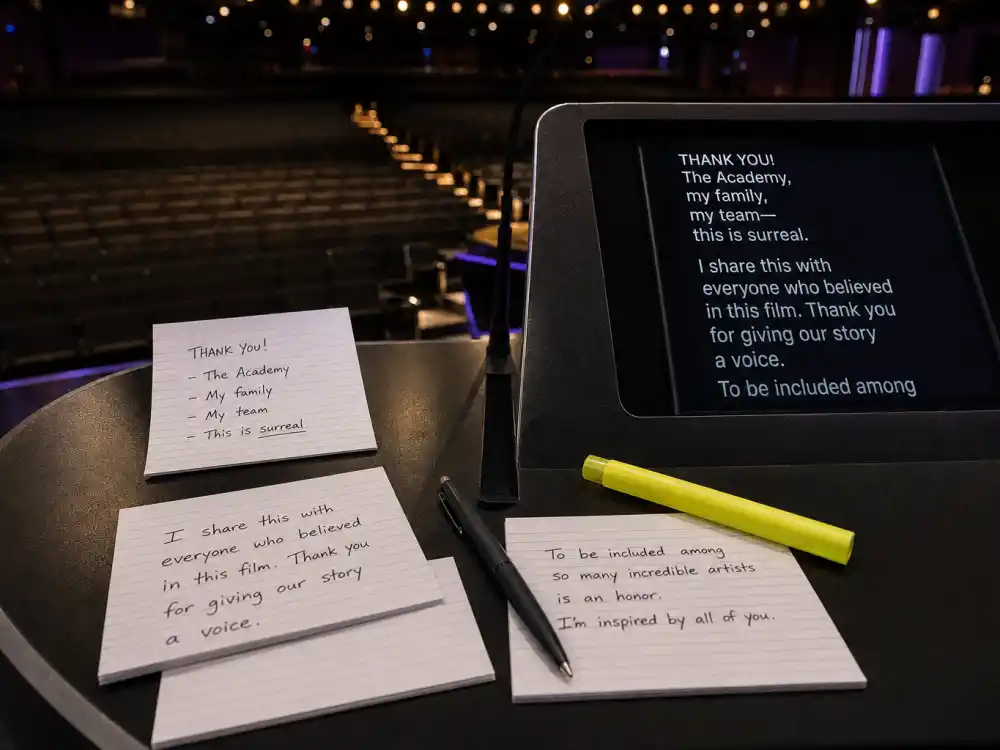 THANK YOU!
- The Academy
- My family
- My team
- This is surreal
I share this with
everyone who believed
in this film. Thank you
for giving our story
a voice.
To be included among
so many incredible artists
is an honor.
I'm inspired by all of you.
THANK YOU!
The Academy,
my family,
my team—
this is surreal.
I share this with
everyone who believed
in this film. Thank you
for giving our story
a voice.
To be included among